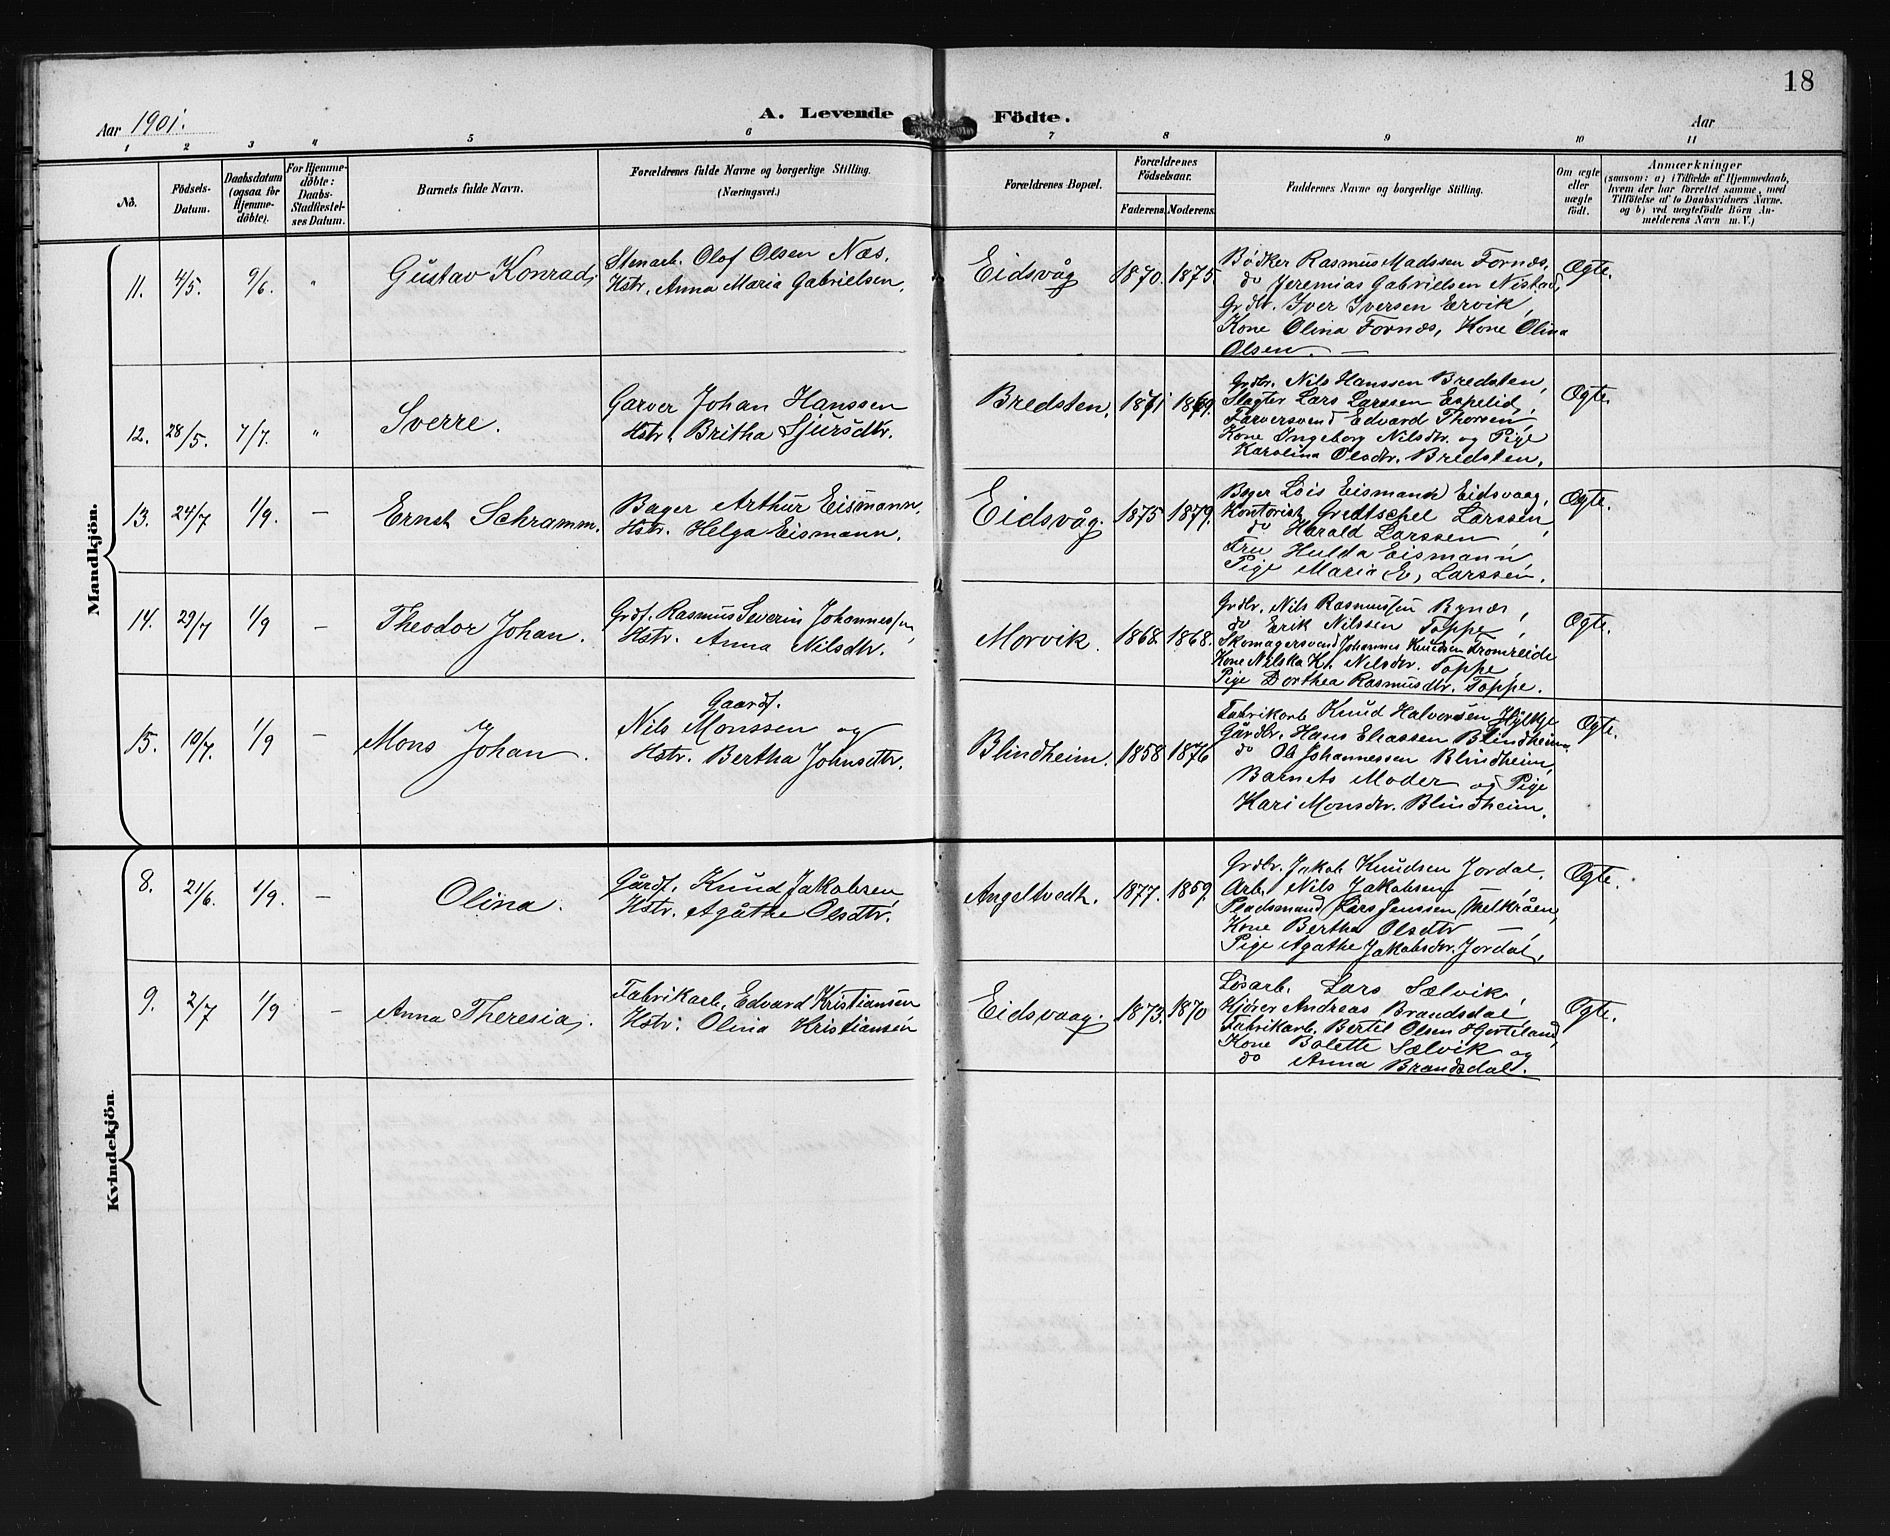 18
A. Levende Födte.
Aar 1901. Aar
1 2 3 4 5 6 7 8 9 10 11
No. Födsels-Datum. Daabsdatum (ogsaa for Hjemmedöbte). For Hjemmedöbte: Daabs-Stadfæstelses Datum. Barnets fulde Navn. Forældrenes fulde Navne og borgerlige Stilling. (Næringsvei.) Forældrenes Bopæl. Forældrenes Födselsaar. Faderens. Moderens. Faddernes Navne og borgerlige Stilling. Om ægte eller uægte födt. Anmærkninger (saasom: a) i Tilfælde af Hjemmedaab, hvem der har forrettet samme, med Tilföielse af to Daabsvidners Navne. og b) ved uægtefödte Börn Anmelderens Navn m. V.)
Mandkjön.
11. 4/5. 9/6. " Gustav Konrad. Stenarb. Olof Olsen Næs. Eidsvåg 1870. 1875. Bödker Rasmus Madssen Fornæs, Ægte.
Hstr. Anna Maria Gabrielsen. do Jeremias Gabrielsen Nistad,
Grdbr. Iver Iversen Ervik,
Kone Olina Fornæs, Kone Olina
Olsen. —
12. 28/5. 7/7. " Sverre. Garver Johan Hanssen Bredsten. 1871 1869. Grdbr. Nils Hanssen Bredsten, Ægte.
Hstr. Britha Sjursdtr. Slagter Lars Larssen Espelid,
Farversvend Edvard Thorsen,
Kone Ingeborg Nilsdtr. og Pige
Karolina Olsdtr. Bredsten.
13. 24/7 1/9. — Ernst Schramm. Bager Arthur Eismann. Eidsvåg. 1875 1879. Bager Lois Eismann Eidsvaag, Ægte.
Hstr. Helga Eismann. Kontorist Larssen,
do Harald Larssen,
Fru Hulda Eismann,
Pige Maria E. Larssen.
14. 29/7 1/9 — Theodor Johan. Grdf. Rasmus Severin Johannessen, Morvik. 1868 1868. Grdbr. Nils Rasmussen Bynes, Ægte.
Hstr. Anna Nilsdtr. do Erik Nilssen Toppe,
Skomagersvend Johannes Knudsen Tromreide
Kone Nilska K. Nilsdtr. Toppe,
Pige Dorthea Rasmusdtr. Toppe.
15. 10/7. 1/9 — Mons Johan. Gaardf. Nils Monssen og Blindheim. 1858 1876 Fabrikarb. Knud Halvorsen Hylkje Ægte.
Hstr. Bertha Johnsdtr. Gårdbr. Hans Eliassen Blindheim,
do Ole Johannessen Blindheim,
Barnets Moder og Pige
Kari Monsdtr. Blindheim.
Kvindekjön.
8. 21/6. 1/9. — Olina. Gårdf. Knud Jakobsen, Angeltvedt. 1877. 1859. Grdbr. Jakob Knudsen Jordal, Ægte.
Hstr. Agåthe Olsdtr. Arb. Nils Jakobsen
Pladsmand Lars Jenssen Melkråen,
Kone Bertha Olsdtr —
Pige Agathe Jakobsdtr. Jordal.
9. 2/7 1/9 — Anna Theresia. Fabrikarb. Edvard Kristiansen Eidsvaag. 1873. 1870 Løsarb. Lars Sælvik, Ægte.
Hstr. Olina Kristiansen Kjører Andreas Brandsdal,
Fabrikarb. Bertil Olsen Hjorteland,
Kone Bolette Sælvik og
do Anna Brandsdal.